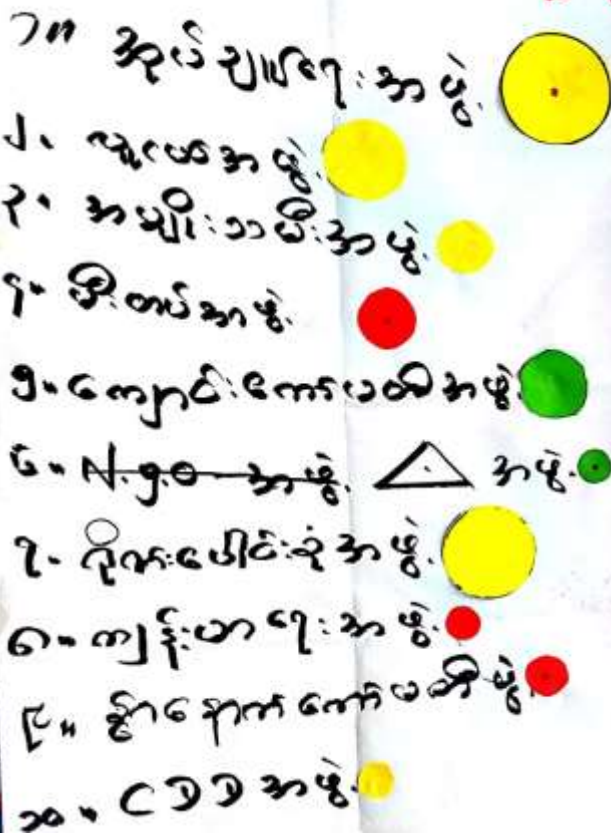 ၁။ အုပ်ချုပ်ရေးအဖွဲ့
၂။ လူငယ်အဖွဲ့
၃။ အမျိုးသမီးအဖွဲ့
၄။ မီးတပ်အဖွဲ့
၅။ ကျောင်းကော်မတီအဖွဲ့
၆။ N.g.o အဖွဲ့ အဖွဲ့
၇။ ပေါင်းစုံအဖွဲ့
၈။ ကျန်းမာရေးအဖွဲ့
၉။ ကော်မတီဖွဲ့
၁၀။ CDD အဖွဲ့